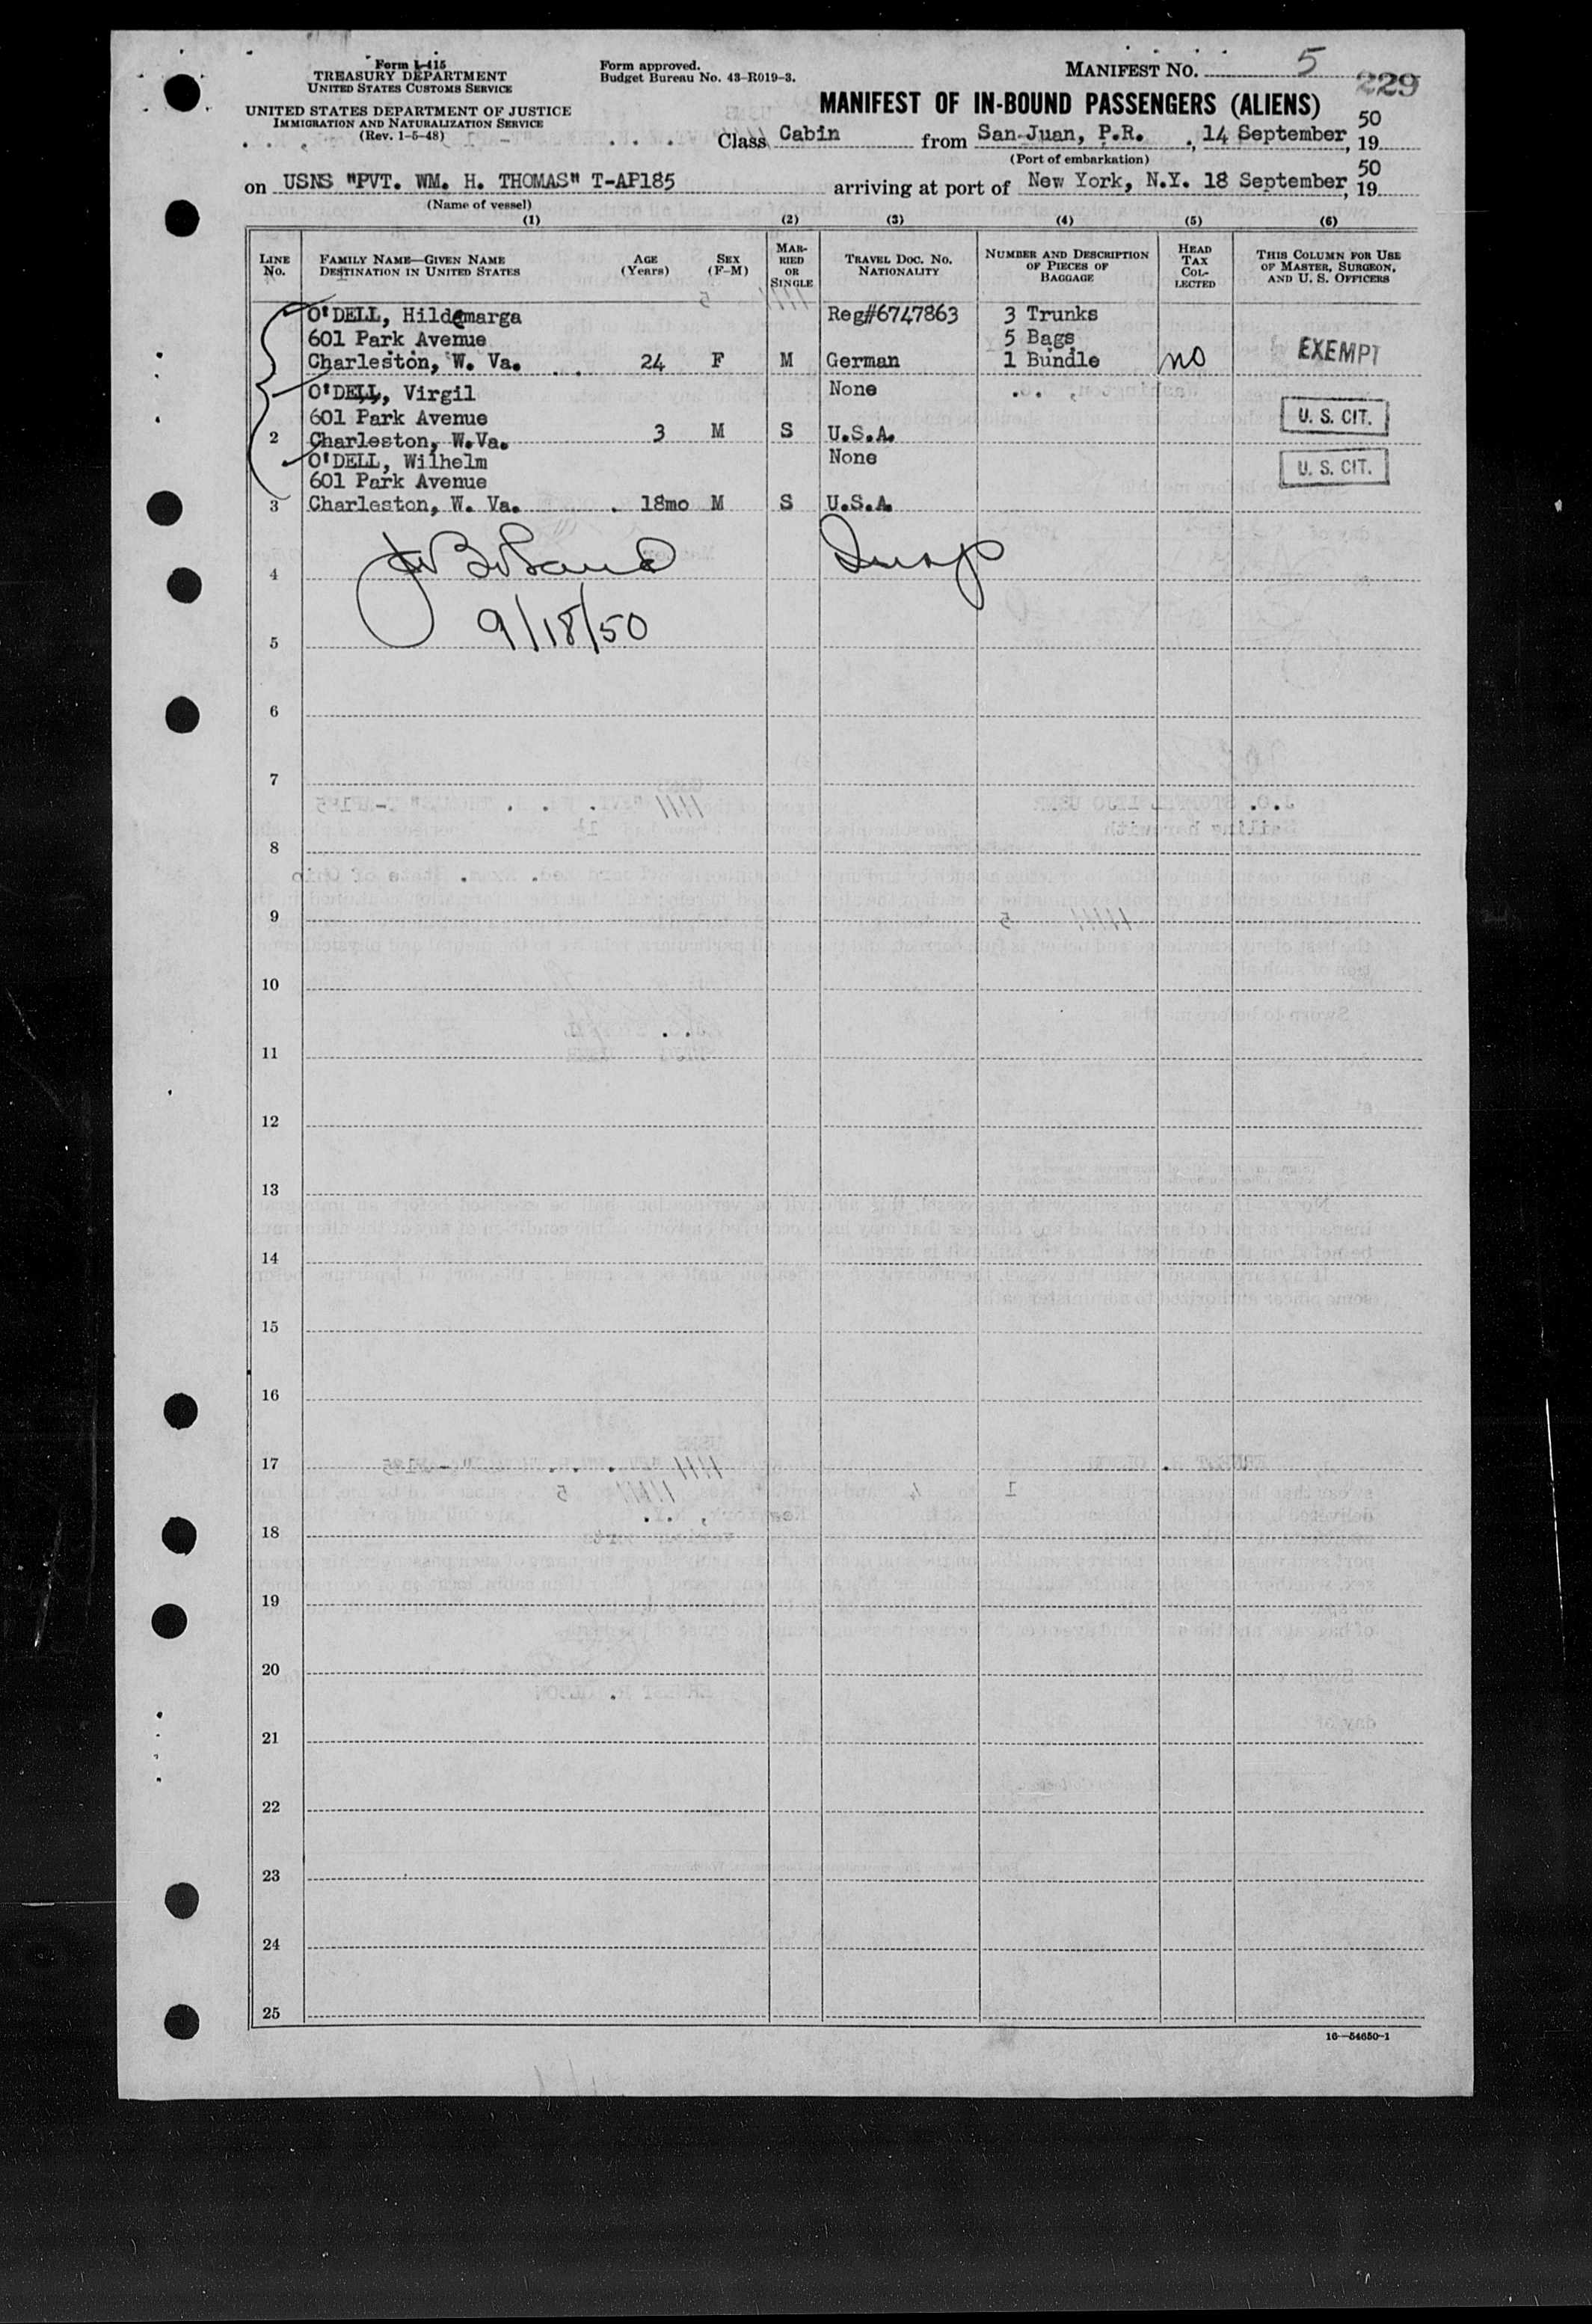 Form I-415
TREASURY DEPARTMENT
UNITED STATES CUSTOMS SERVICE
UNITED STATES DEPARTMENT OF JUSTICE
IMMIGRATION AND NATURALIZATION SERVICE
(Rev. 1-5-48)
Form approved.
Budget Bureau No. 43-R019-3.
MANIFEST NO. 5
229
MANIFEST OF IN-BOUND PASSENGERS (ALIENS)
Class Cabin from San Juan, P.R. , 14 September, 19 50
(Port of embarkation)
on USNS "PVT. WM. H. THOMAS" T-AP185 arriving at port of New York, N.Y. 18 September, 19 50
(Name of vessel)
(1) (2) (3) (4) (5) (6)
LINE NO. FAMILY NAME—GIVEN NAME DESTINATION IN UNITED STATES AGE (Years) SEX (F-M) MARRIED OR SINGLE TRAVEL DOC. NO. NATIONALITY NUMBER AND DESCRIPTION OF PIECES OF BAGGAGE HEAD TAX COLLECTED THIS COLUMN FOR USE OF MASTER, SURGEON, AND U. S. OFFICERS
O'DELL, Hildemarga Reg#6747863 3 Trunks
601 Park Avenue 5 Bags
Charleston, W. Va. 24 F M German 1 Bundle no EXEMPT
O'DELL, Virgil None
601 Park Avenue U. S. CIT.
2 Charleston, W.Va. 3 M S U.S.A.
O'DELL, Wilhelm None
601 Park Avenue U. S. CIT.
3 Charleston, W. Va. 18mo M S U.S.A.
Insp
4
9/18/50
5
6
7
8
9
10
11
12
13
14
15
16
17
18
19
20
21
22
23
24
25
16—54650-1